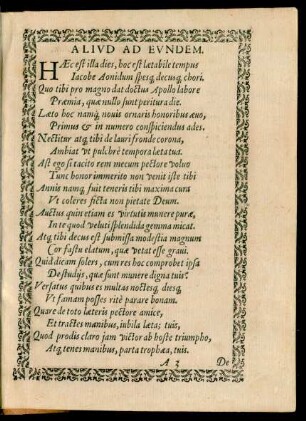 ALIVD AD EVNDEM.
HÆc est illa dies, hoc est lætabile tempus
Iacobe Aonidum spesq; decusq; chori.
Quo tibi pro magno dat doctus Apollo labore
Præmia, quæ nullo sunt peritura die.
Læto hoc namq; nouis ornaris honoribus æuo,
Primus & in numero conspiciendus ades.
Nectitur atq; tibi de lauri fronde corona,
Ambiat vt pulchrè tempora læta tua.
Ast ego si tacito rem mecum pectore voluo
Tunc honor immerito non venit iste tibi
Annis namq; fuit teneris tibi maxima cura
Vt coleres ficta non pietate Deum.
Auctus quin etiam es virtutis munere puræ,
In te quod veluti splendida gemma micat.
Atq; tibi decus est submissa modestia magnum
Cor fastu elatum, quæ vetat esse graui.
Quid dicam solers, cum res hoc comprobet ipsa
De studijs, quæ sunt munere digna tuis?
Versatus quibus es multas noctesq; diesq;
Vt famam posses ritè parare bonam.
Quare de toto læteris pectore amice,
Et tractes manibus, iubila læta; tuis,
Quod prodis claro jam victor ab hoste triumpho,
Atq; tenes manibus, parta trophæa, tuis.
A 3 De